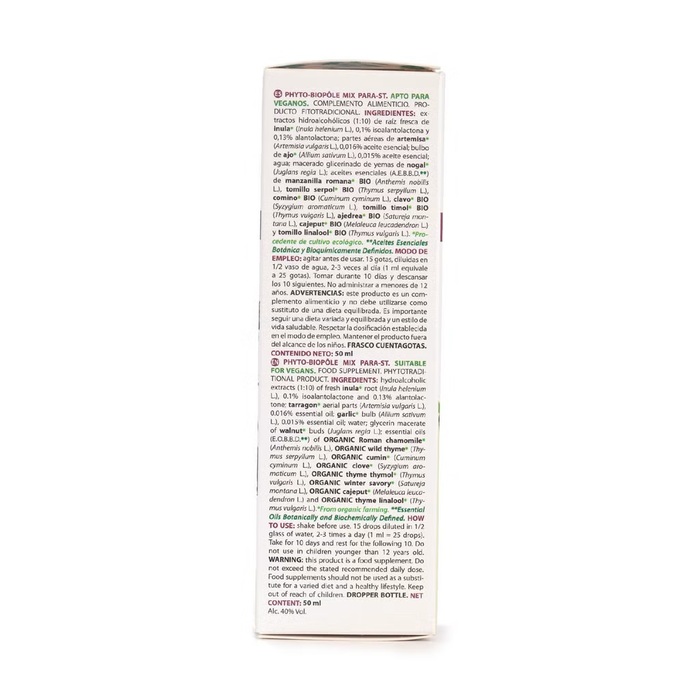 ES PHYTO-BIOPÔLE MIX PARA-ST. APTO PARA
VEGANOS. COMPLEMENTO ALIMENTICIO. PRO-
DUCTO FITOTRADICIONAL. INGREDIENTES: ex-
tractos hidroalcohólicos (1:10) de raíz fresca de
inula* (Inula helenium L.), 0,1% isoalantolactona y
0,13% alantolactona; partes aéreas de artemisa*
(Artemisia vulgaris L.), 0,016% aceite esencial; bulbo
de ajo* (Allium sativum L.), 0,015% aceite esencial;
agua; macerado glicerinado de yemas de nogal*
(Juglans regia L.); aceites esenciales (A.E.B.B.D.**)
de manzanilla romana* BIO (Anthemis nobilis
L.), tomillo serpol* BIO (Thymus serpyllum L.),
comino* BIO (Cuminum cyminum L.), clavo* BIO
(Syzygium aromaticum L.), tomillo timol* BIO
(Thymus vulgaris L.), ajedrea* BIO (Satureja mon-
tana L.), cajeput* BIO (Melaleuca leucadendron L.)
y tomillo linalool* BIO (Thymus vulgaris L.). *Pro-
cedente de cultivo ecológico. **Aceites Esenciales
Botánica y Bioquímicamente Definidos. MODO DE
EMPLEO: agitar antes de usar. 15 gotas, diluidas en
1/2 vaso de agua, 2-3 veces al día (1 ml equivale
a 25 gotas). Tomar durante 10 días y descansar
los 10 siguientes. No administrar a menores de 12
años. ADVERTENCIAS: este producto es un com-
plemento alimenticio y no debe utilizarse como
sustituto de una dieta equilibrada. Es importante
seguir una dieta variada y equilibrada y un estilo de
vida saludable. Respetar la dosificación establecida
en el modo de empleo. Mantener el producto fuera
del alcance de los niños. FRASCO CUENTAGOTAS.
CONTENIDO NETO: 50 ml
EN PHYTO-BIOPÔLE MIX PARA-ST. SUITABLE
FOR VEGANS. FOOD SUPPLEMENT. PHYTOTRADI-
TIONAL PRODUCT. INGREDIENTS: hydroalcoholic
extracts (1:10) of fresh inula* root (Inula helenium
L.), 0.1% isoalantolactone and 0.13% alantolac-
tone; tarragon* aerial parts (Artemisia vulgaris L.),
0.016% essential oil; garlic* bulb (Allium sativum
L.), 0.015% essential oil; water; glycerin macerate
of walnut* buds (Juglans regia L.); essential oils
(E.O.B.B.D.**) of ORGANIC Roman chamomile*
(Anthemis nobilis L.), ORGANIC wild thyme* (Thy-
mus serpyllum L.), ORGANIC cumin* (Cuminum
cyminum L.), ORGANIC clove* (Syzygium aro-
maticum L.), ORGANIC thyme thymol* (Thymus
vulgaris L.), ORGANIC winter savory* (Satureja
montana L.), ORGANIC cajeput* (Melaleuca leuca-
dendron L.) and ORGANIC thyme linalool* (Thy-
mus vulgaris L.). *From organic farming. **Essential
Oils Botanically and Biochemically Defined. HOW
TO USE: shake before use. 15 drops diluted in 1/2
glass of water, 2-3 times a day (1 ml = 25 drops).
Take for 10 days and rest for the following 10. Do
not use in children younger than 12 years old.
WARNING: this product is a food supplement. Do
not exceed the stated recommended daily dose.
Food supplements should not be used as a substi-
tute for a varied diet and a healthy lifestyle. Keep
out of reach of children. DROPPER BOTTLE. NET
CONTENT: 50 ml
Alc. 40% Vol.